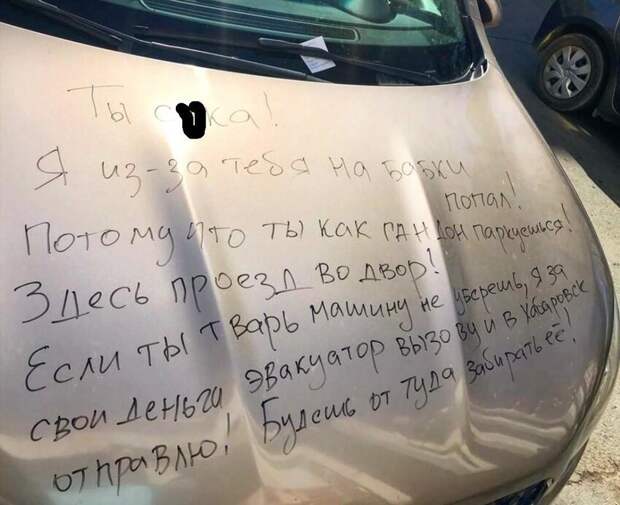 Ты с ка!
Я из-за тебя на бабки
попал!
Потому что ты как гандон паркуешься!
Здесь проезд во двор!
Если ты тварь машину не уберешь, я за
свои деньга эвакуатор вызову и в Хабаровск
отправлю! Будешь от туда забирать её!